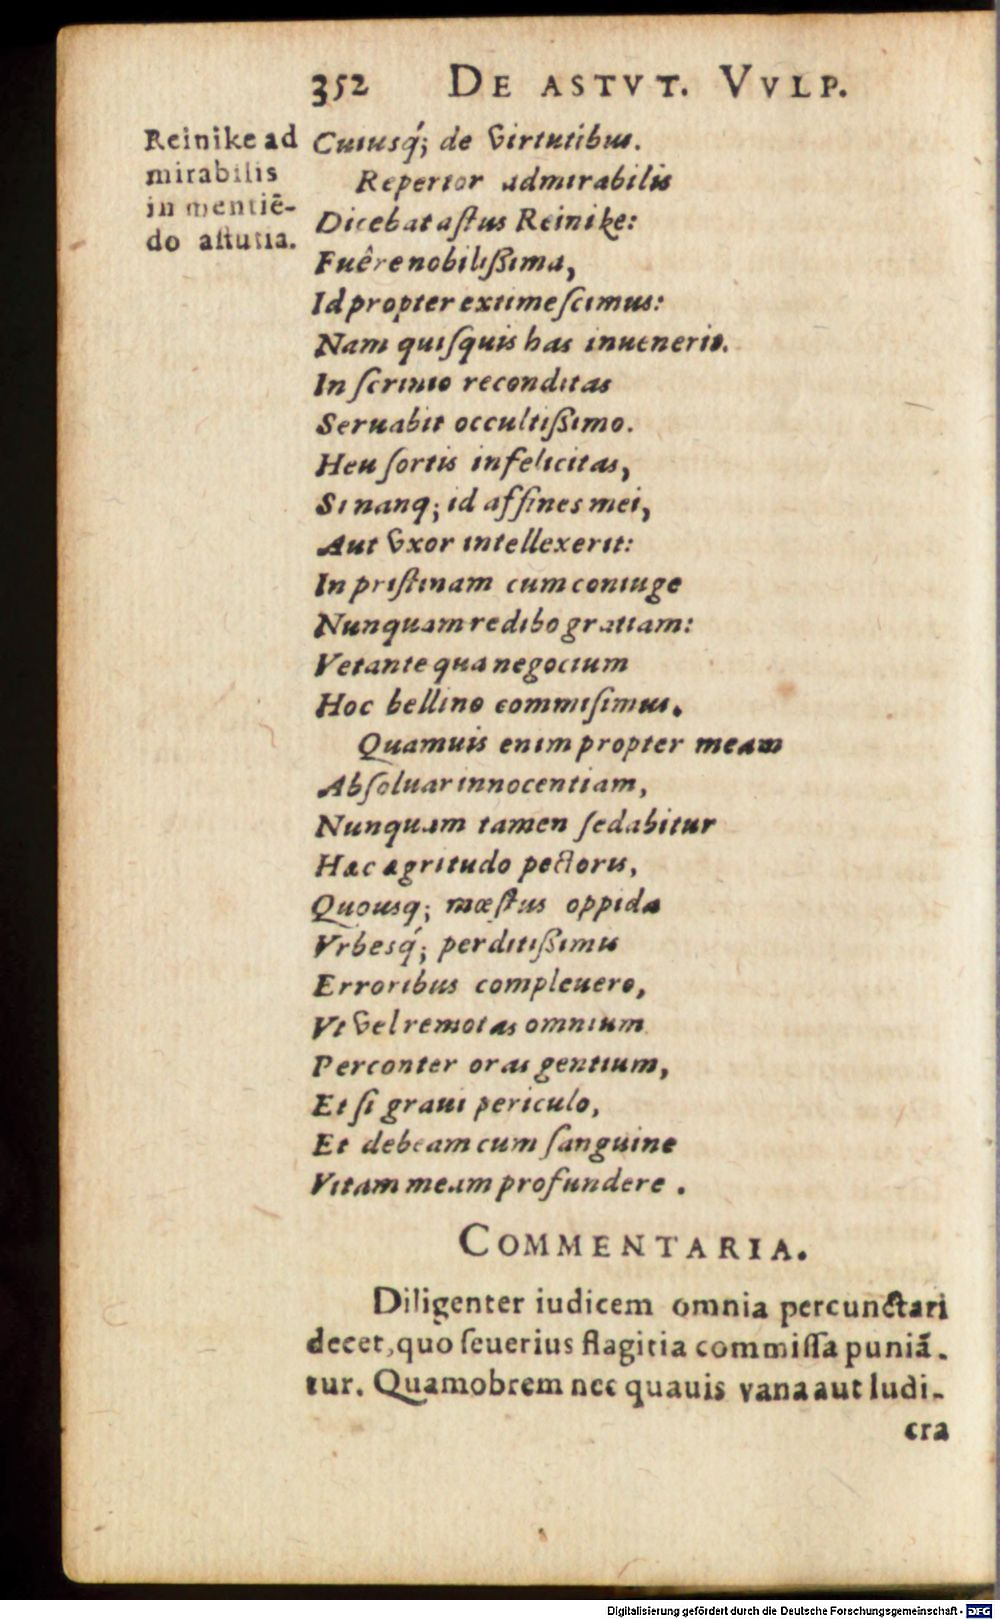 352 DE ASTVT. VVLP.
Reinike ad
mirabilis
in mentiē-
do aſtutia.
Cuiusq́; de virtutibus.
Repertor admirabilis
Dicebat aſtus Reinike:
Fuêre nobilißima,
Id propter extimeſcimus:
Nam quiſquis has inuenerit.
In ſcrinio reconditas
Seruabit occultißimo.
Heu ſortis infelicitas,
Si nanq; id affines mei,
Aut vxor intellexerit:
In priſtinam cum coniuge
Nunquam redibo gratiam:
Vetante qua negocium
Hoc bellino commiſimus.
Quamuis enim propter meam
Abſoluar innocentiam,
Nunquam tamen ſedabitur
Hæc ægritudo pectoris,
Quousq; mœſtus oppida
Vrbesq́; perditißimis
Erroribus compleuero,
Vt vel remotas omnium
Perconter oras gentium,
Et ſi graui periculo,
Et debeam cum ſanguine
Vitam meam profundere.
COMMENTARIA.
Diligenter iudicem omnia percunctari
decet, quo ſeuerius flagitia commiſſa puniā-
tur. Quamobrem nec quauis vana aut ludi-
cra
Digitalisierung gefördert durch die Deutsche Forschungsgemeinschaft - DFG